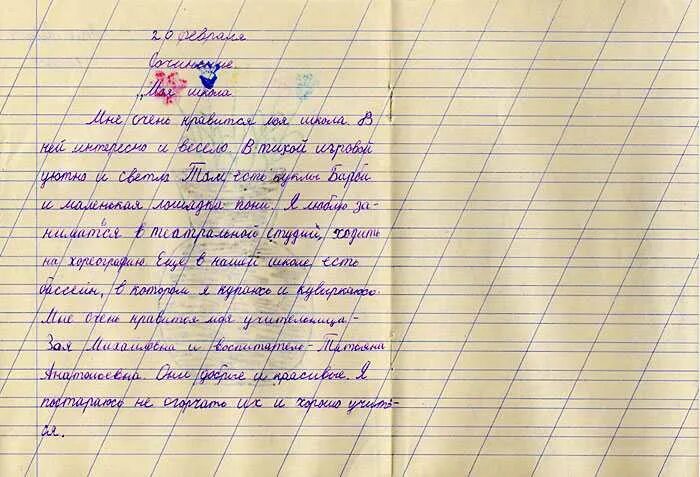 20 февраля
Сочинение.
„Моя школа
Мне очень нравится моя школа. В
ней интересно и весело. В тихой игровой
уютно и светло Там есть куклы Барби
и маленькая лошадка пони. Я люблю за-
ниматься в театральной студий, ходить
на хореографию. Ещё в нашей школе есть
бассейн, в котором я купаюсь и кувыркаюсь.
Мне очень нравится моя учительница -
Зоя Михаиловна и воспитатель - Татьяна
Анатольевна. Они добрые и красивые. Я
постараюсь не огорчать их и хорошо учить-
ся.